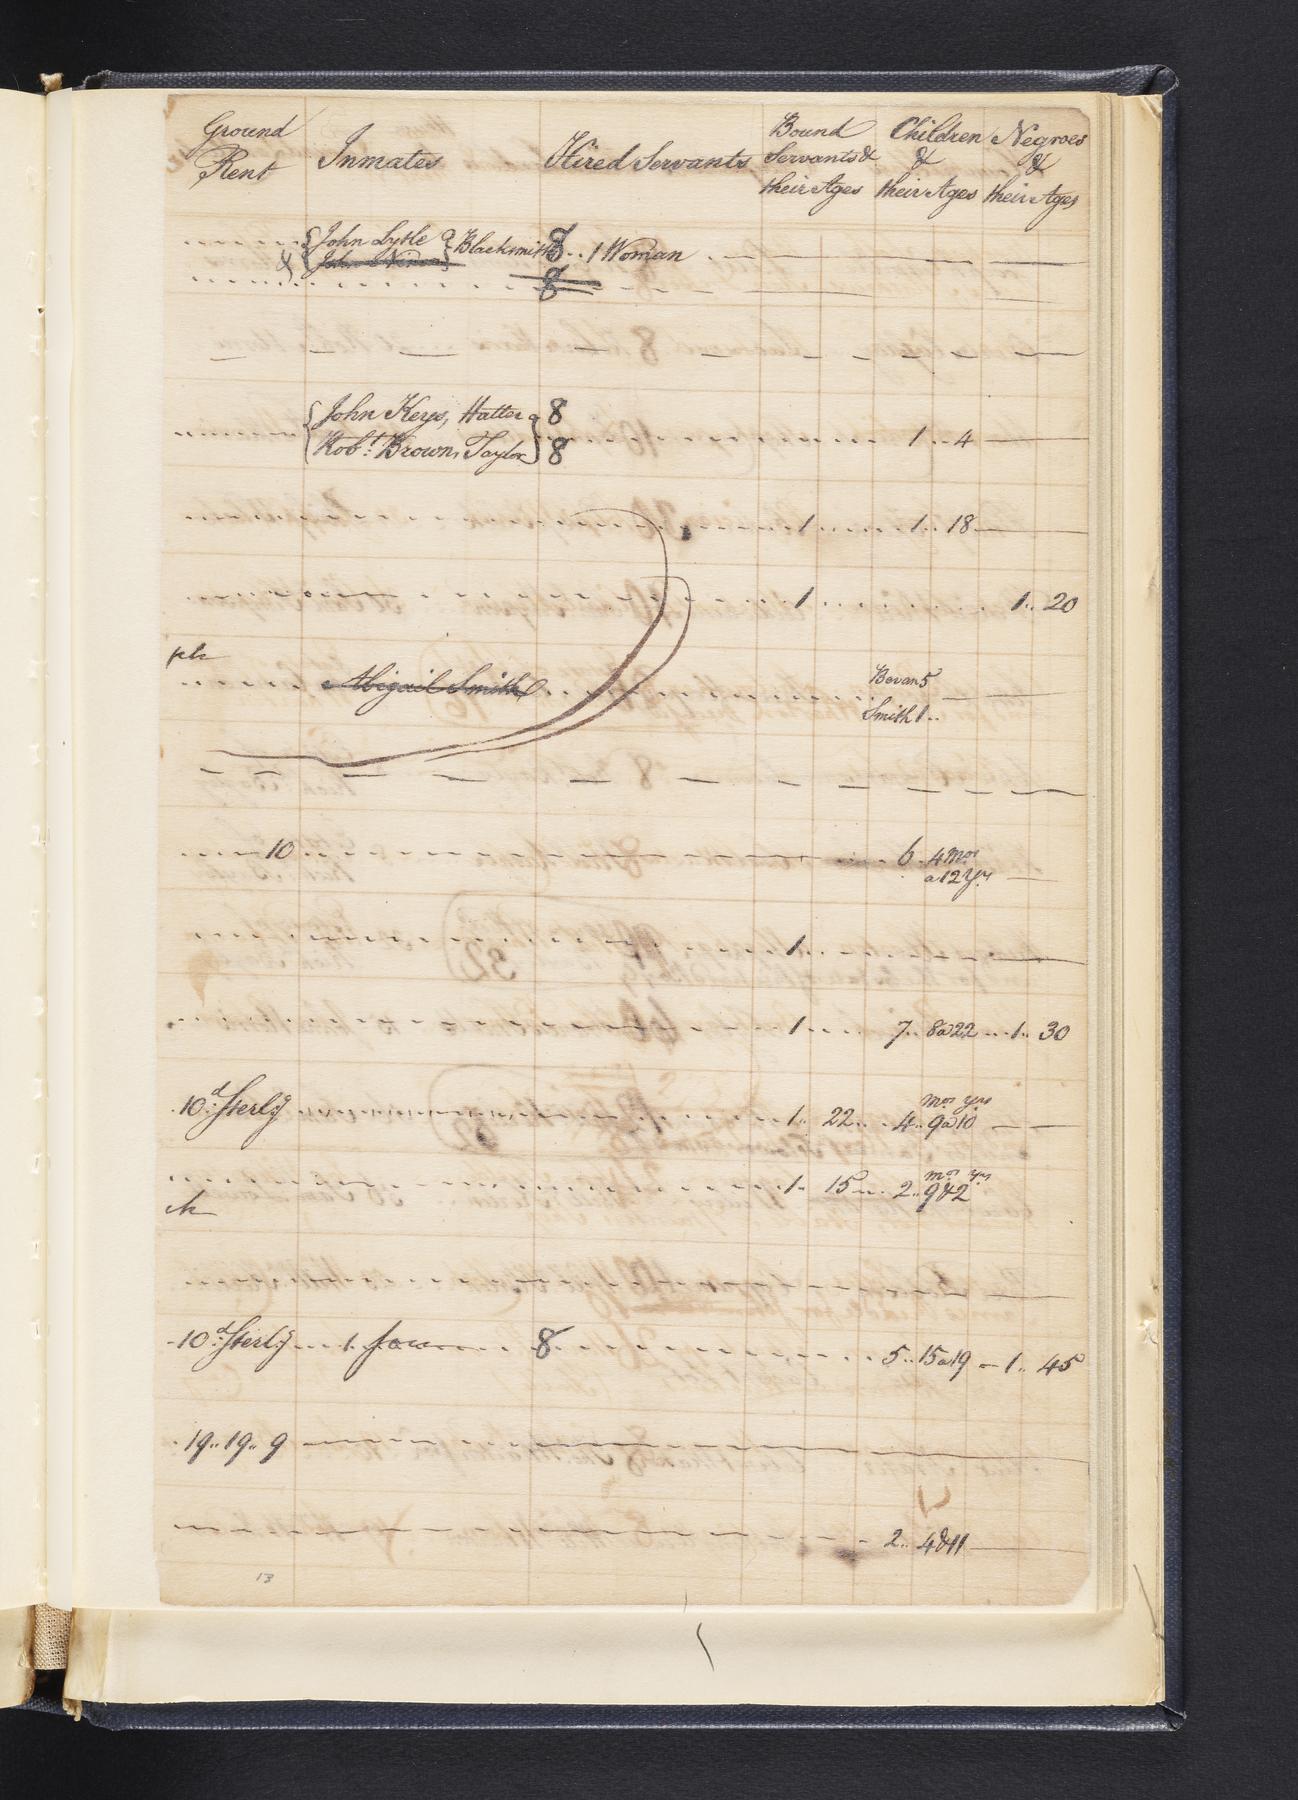 Ground Rent Inmates Hired Servants Bound Servants & their Ages Children & their Ages Negroes & their Ages
{John Lytle } Blacksmith 8 .. 1 Woman
& {John } 8
{John Keys, Hatter } 8
{Robt. Brown, Taylor } 8 1 .. 4
1 1 .. 18
1 1 .. 20
Abigail Smith Bevan 5
Smith 1 ..
10 6 . 4 Mos
a 12 Yrs
1
1 7 .. 8 a 22 1 .. 30
mos yrs
10d. Sterlg 1 .. 22 .. 4 .. 9 a 10
mos yrs
1 . 15 2 .. 9 & 2
10d. Sterlg 1. 8 5 .. 15 a 19 1 .. 45
19 .. 19 .. 9
2 .. 4 & 11
13